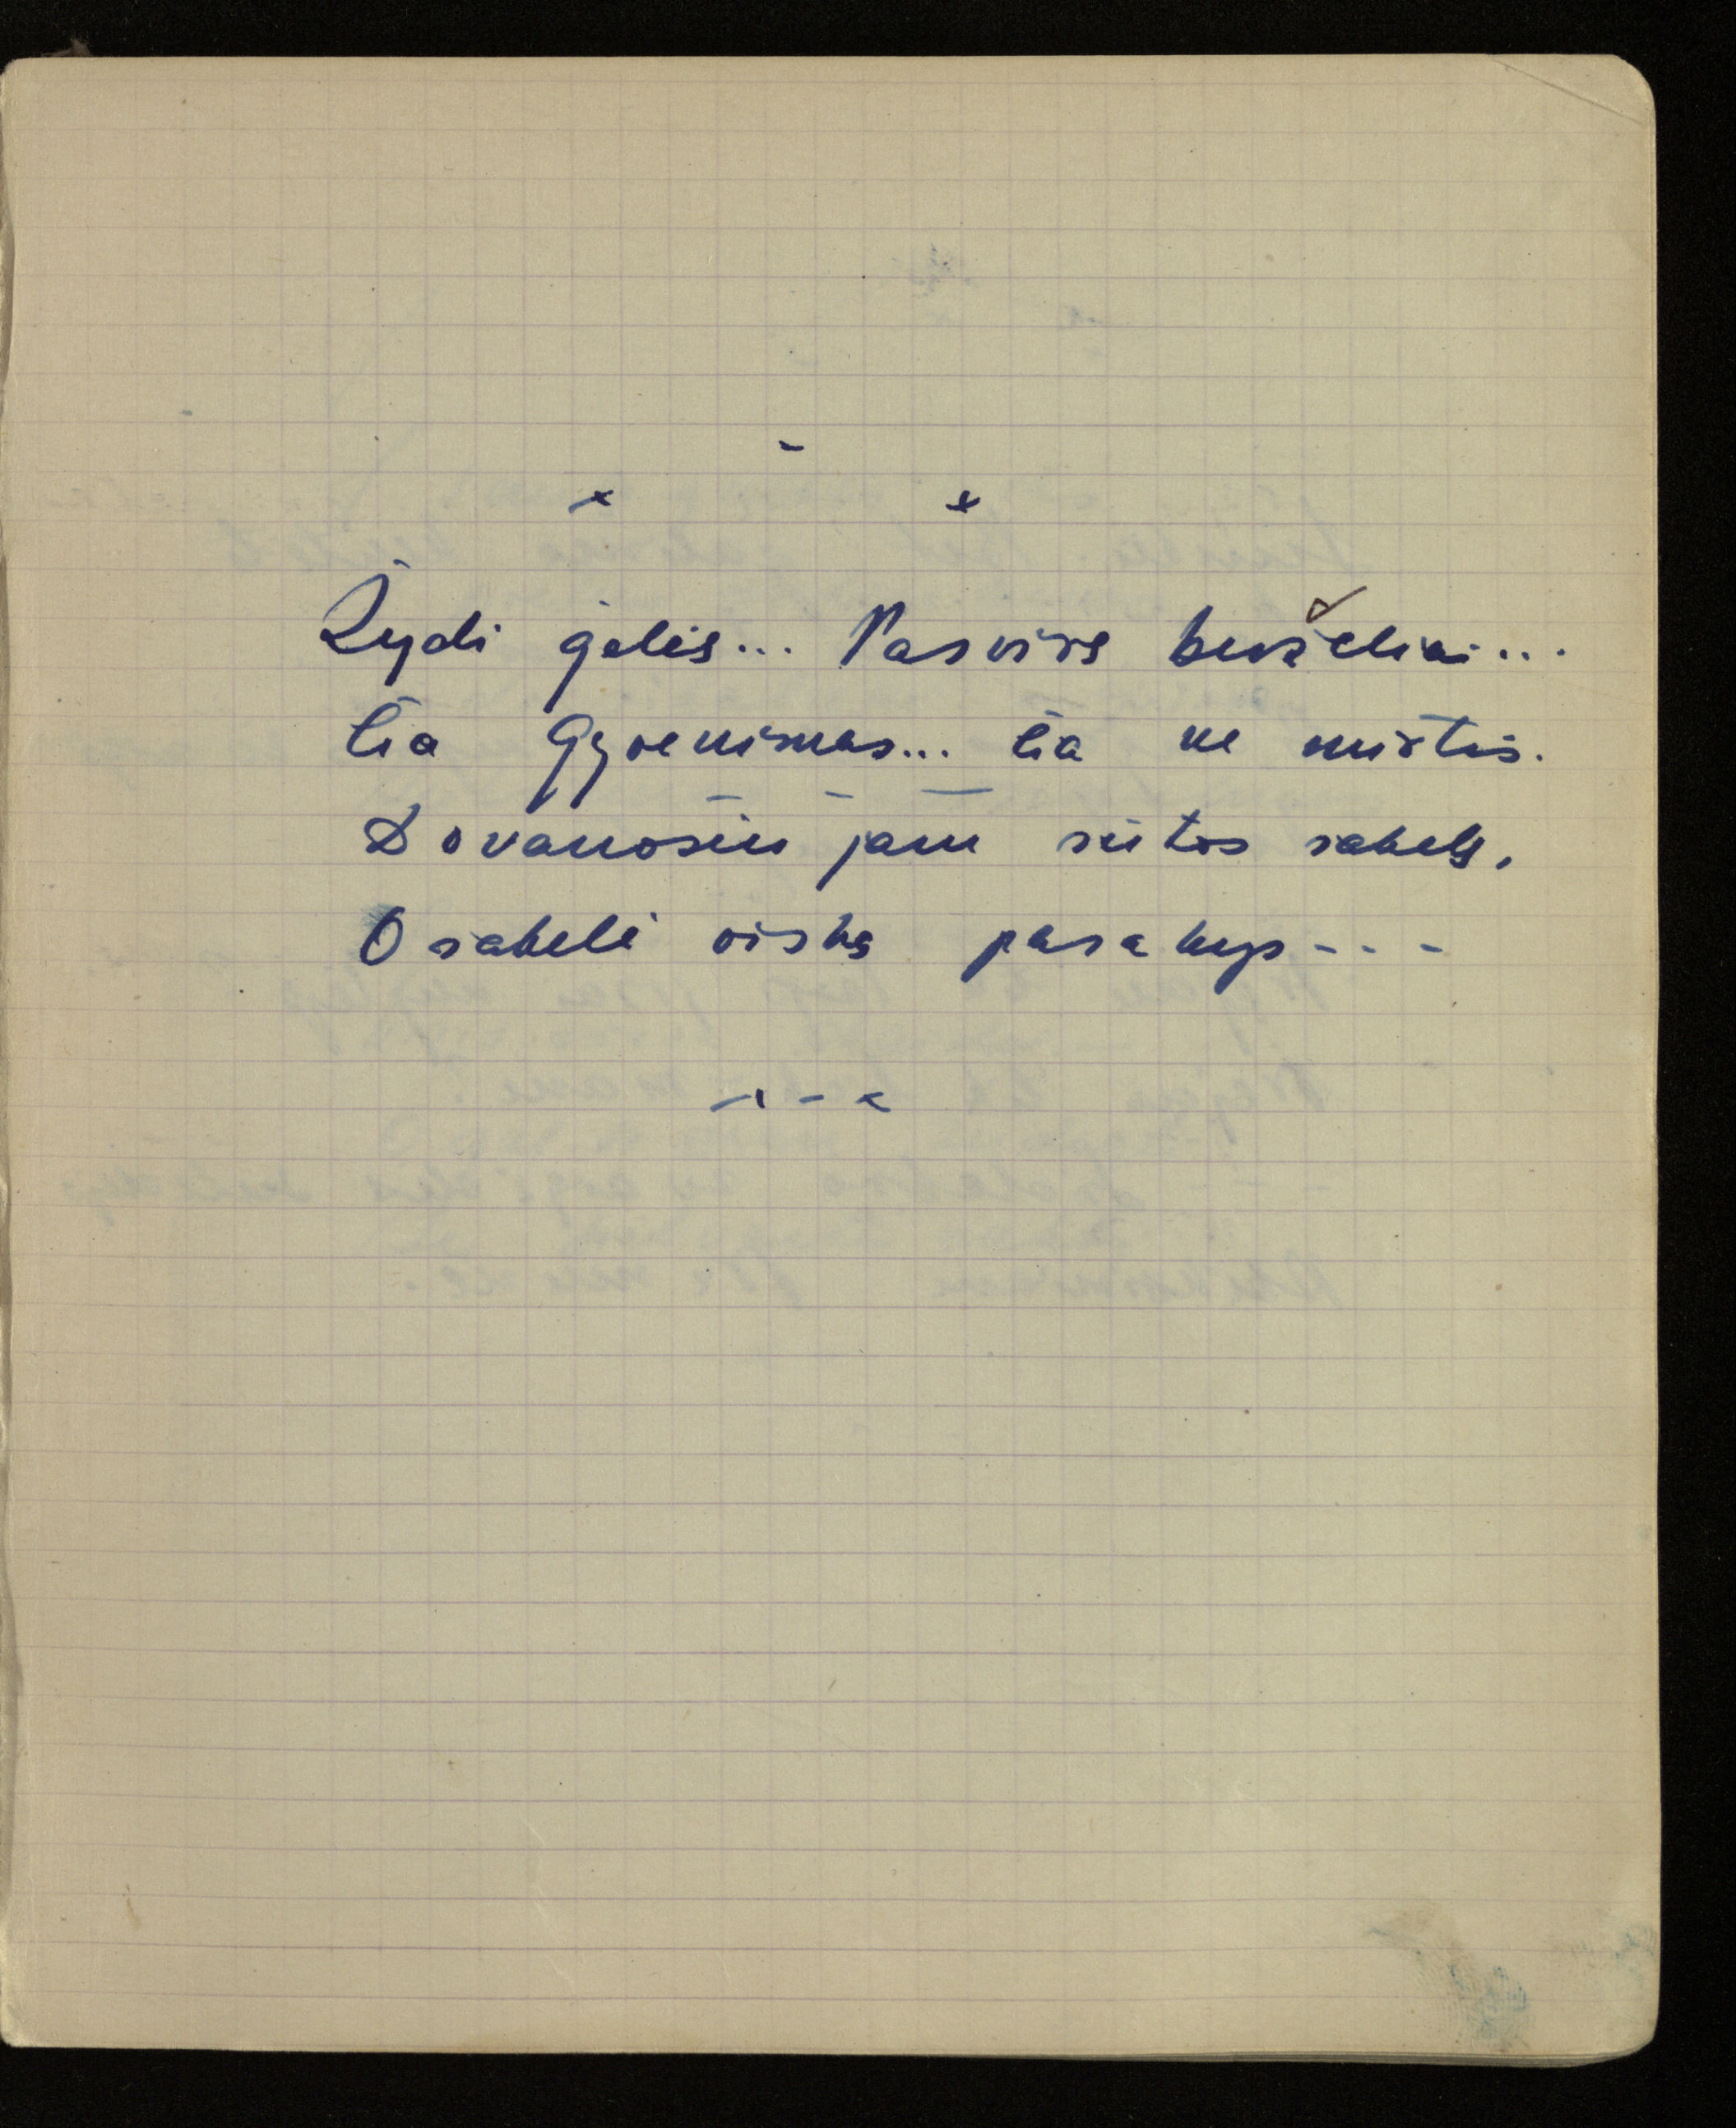 Žydi gėlės... Pasvirę berželiai...
Čia Gyvenimas... Čia ne mirtis.
Dovanosiu jam rūtos šakelę,
O šakelė viską pasakys - - -